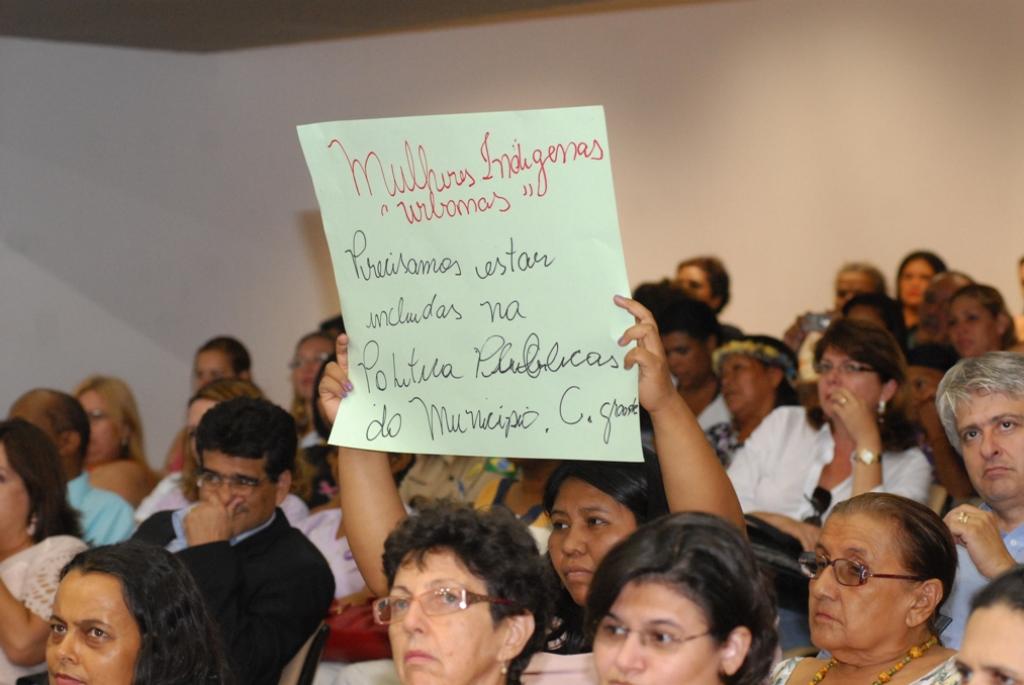 Mulheres Indígenas
"urbanas"
Precisamos estar
incluidas na
Politica Públicas
do Município. C. grande